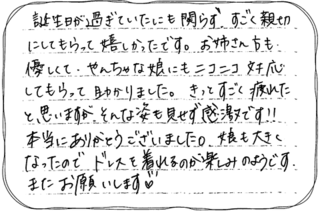 誕生日が過ぎていたにも関らず、すごく親切
にしてもらって嬉しかったです。お姉さんたちも
優しくて、やんちゃな娘にもニコニコ対応
してもらって助かりました。きっとすごく疲れた
と思いますが、そんな姿も見せず感激です!!
本当にありがとうございました。娘も大きく
なったので、ドレスを着れるのが楽しみのようです.
またお願いします♡